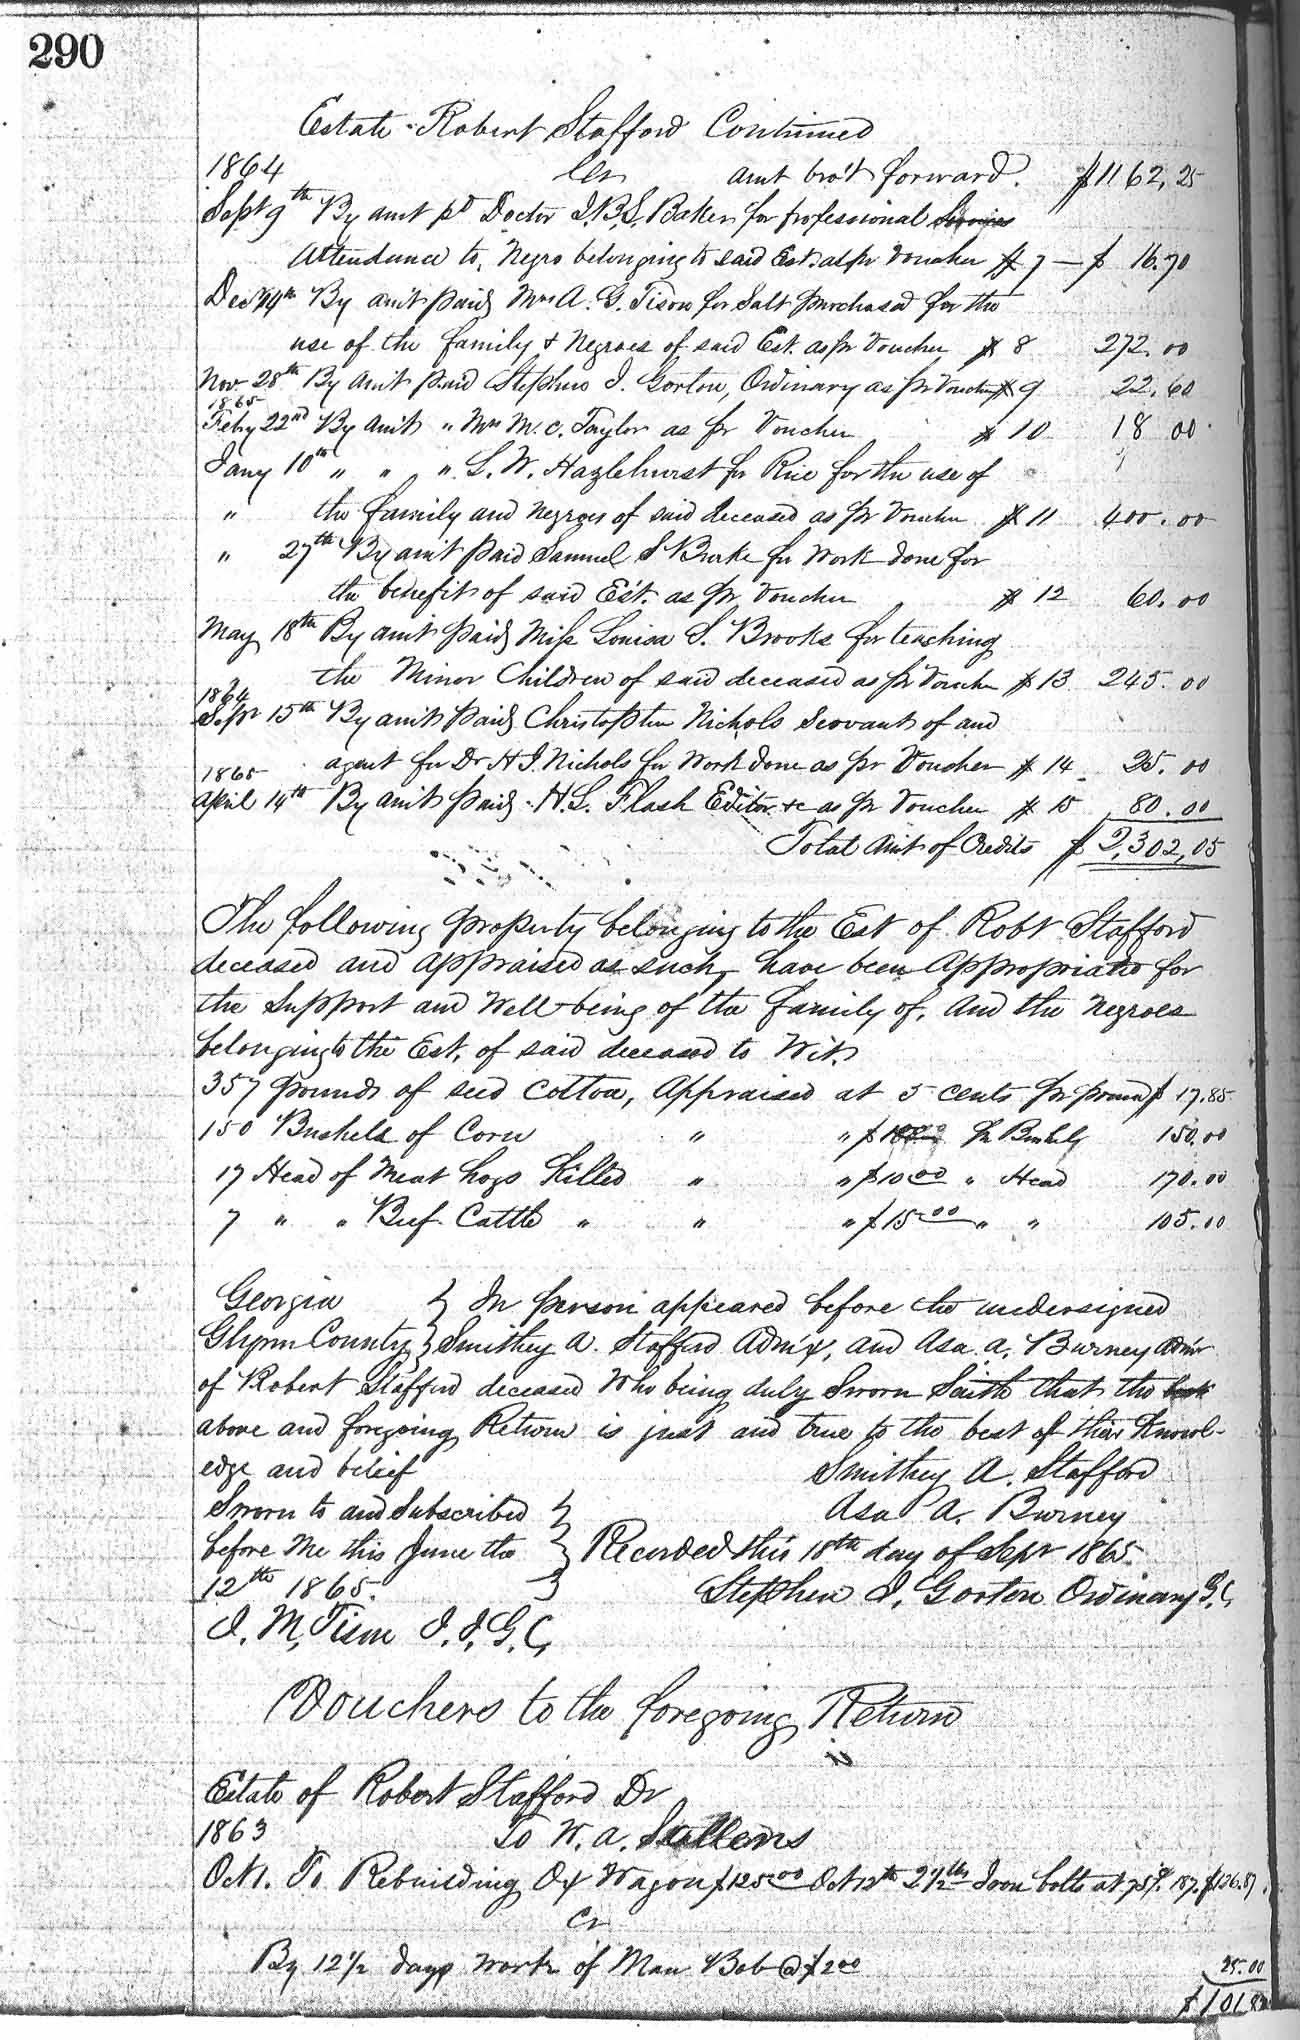 290
Estate Robert Stafford Continued
1864 Cr amt bro't forward. $1162,25
Sept 9th By amt pd Doctor J.B.S. Baker for professional Services
Attendance to, Negro belonging to said Est. as pr Voucher # 7 — $ 16.70
Decr 14th By amt paid Mrs A. G. Tison for Salt purchased for the
use of the family & Negroes of said Est. as pr Voucher # 8 272.00
Nov 28th By amt paid Stephen J. Gorton, Ordinary as pr Voucher # 9 22.60
1865
Feby 22nd By amt " Mrs M. C. Taylor as pr Voucher # 10 18 00
Jany 10th " " " L. W. Hazlehurst for Rice for the use of
" the family and negroes of said deceased as pr Voucher # 11 400.00
" 27th By amt paid Samuel S Burke for Work done for
the benefit of said Est. as pr Voucher # 12 60.00
May 18th By amt paid Miss Louisa S. Brooks for teaching
the Minor Children of said deceased as pr Voucher # 13 245.00
1864
Sept 15th By amt paid Christopher Nichols Servant of and
agent for Dr H J. Nichols for Work done as pr Voucher # 14 25.00
1865
April 14th By amt paid H. L. Flash Editor &c as pr Voucher # 15 80.00
Total Amt of Credits $ 2,302,05
The following property belonging to the Est of Robt Stafford
deceased and appraised as such, have been Appropriated for
the Support and Well-being of the family of, and the Negroes
belonging to the Est, of said deceased to Wit.
357 pounds of seed cotton, Appraised at 5 cents pr pound $ 17.85
150 Bushels of Corn " " $ 1.00 pr Bushel 150.00
17 Head of Meat hogs Killed " " $10 00 " Head 170.00
7 " " Beef Cattle " " " $15 00 " " 105.00
Georgia } In person appeared before the undersigned
Glynn County } Smithey A. Stafford Admx, and Asa. A. Burney Admr
of Robert Stafford deceased Who being duly Sworn Saith that the
above and foregoing Return is just and true to the best of their Knowl-
edge and belief Smithey A. Stafford
Sworn to and Subscribed } Asa A. Burney
before Me this June the } Recorded this 18th day of Sept 1865
12th 1865. } Stephen J. Gorton Ordinary G.C.
J. M. Tison J. I. G. C,
Vouchers to the foregoing Return
Estate of Robert Stafford Dr
1863 To W. A.
Oct. To Rebuilding Ox Wagon $125 00 Oct 12th 2 1/2 lbs Iron bolts at 75¢. 187. $126.87
Cr
By 12 1/2 days work of Man Bob @ $2 00 25.00
$101.87